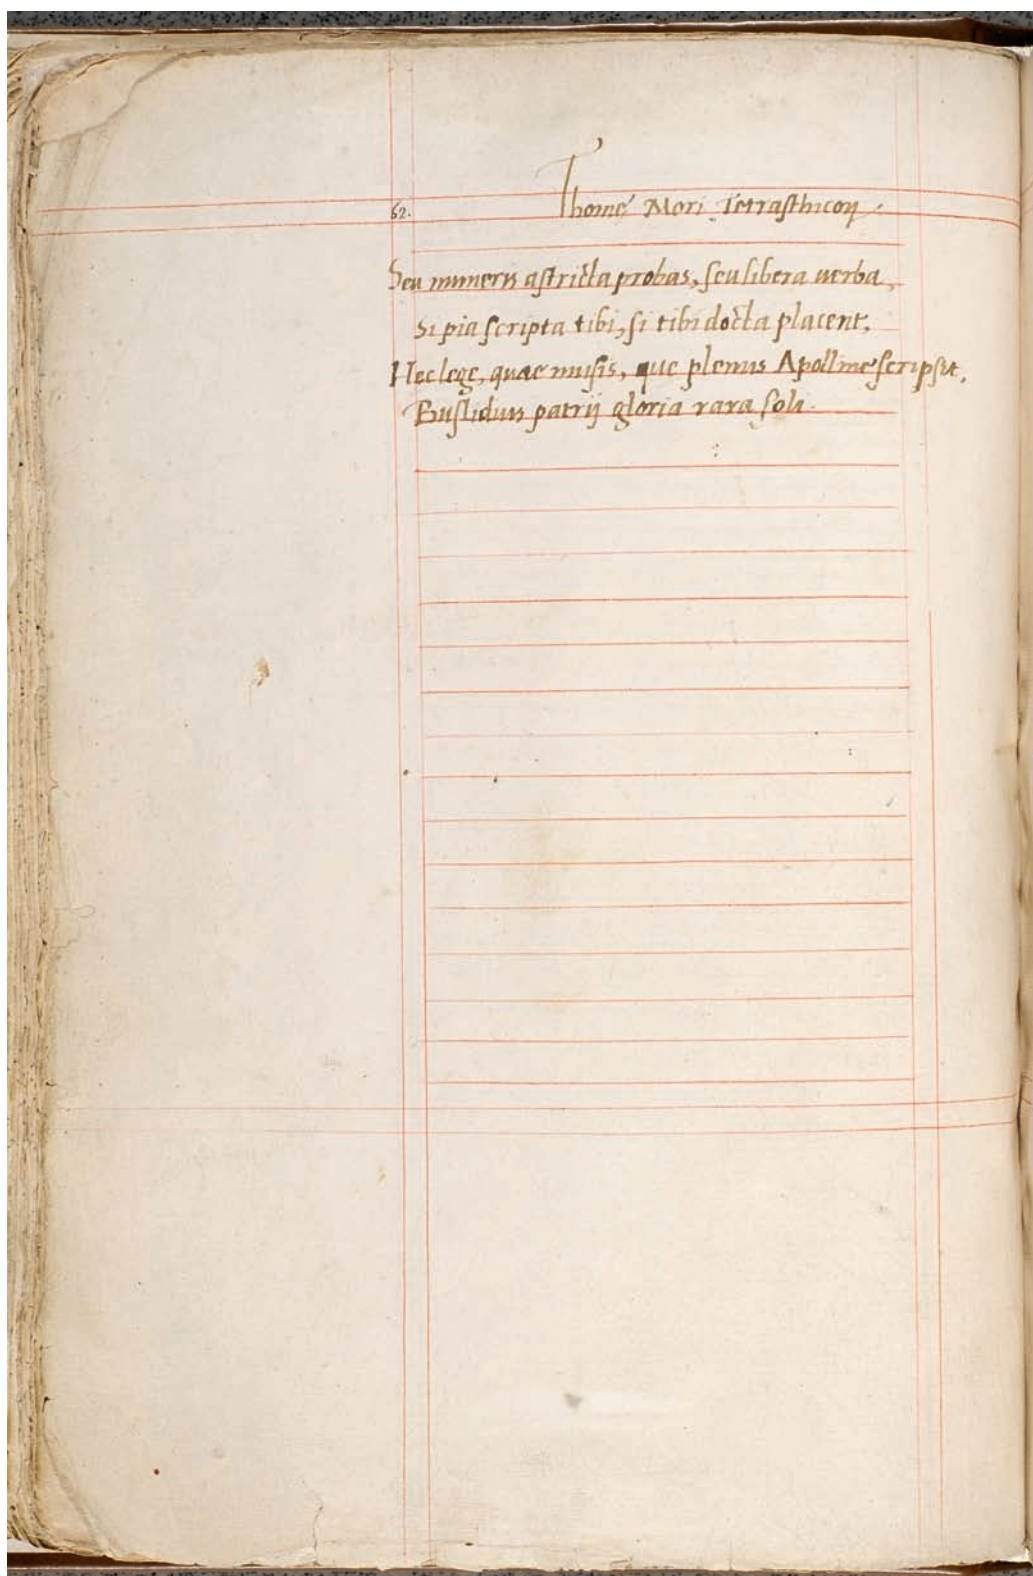 62.
Thome Mori Tetrasthicon
Seu numeris astricta probas, seu libera verba,
Si pia scripta tibi, si tibi docta placent,
Hec lege, quae musis, que plenus Apolline scripsit,
patrij gloria rara soli.